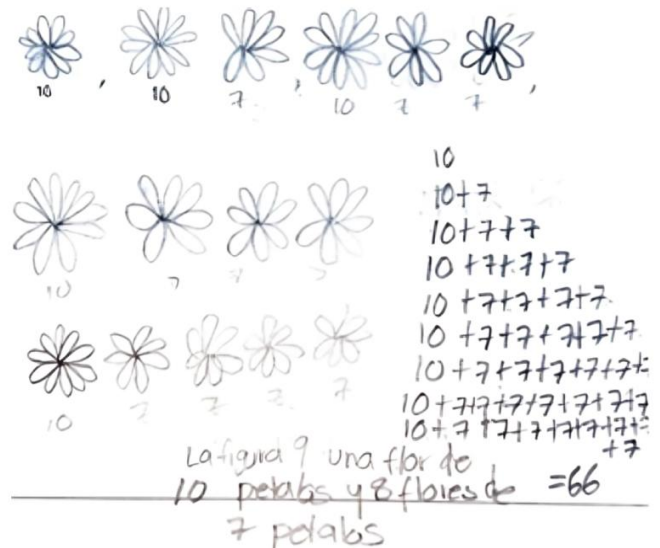 10 , 10 7 , 10 7 7 ,
10 7 7 7
10 7 7 7 7
10
10+7
10+7+7
10+7+7+7
10+7+7+7+7
10+7+7+7+7+7
10+7+7+7+7+7+
10+7+7+7+7+7+7+7
10+7+7+7+7+7+7+7+
+7
=66
La figura 9 una flor de
10 petalos y 8 flores de
7 petalos